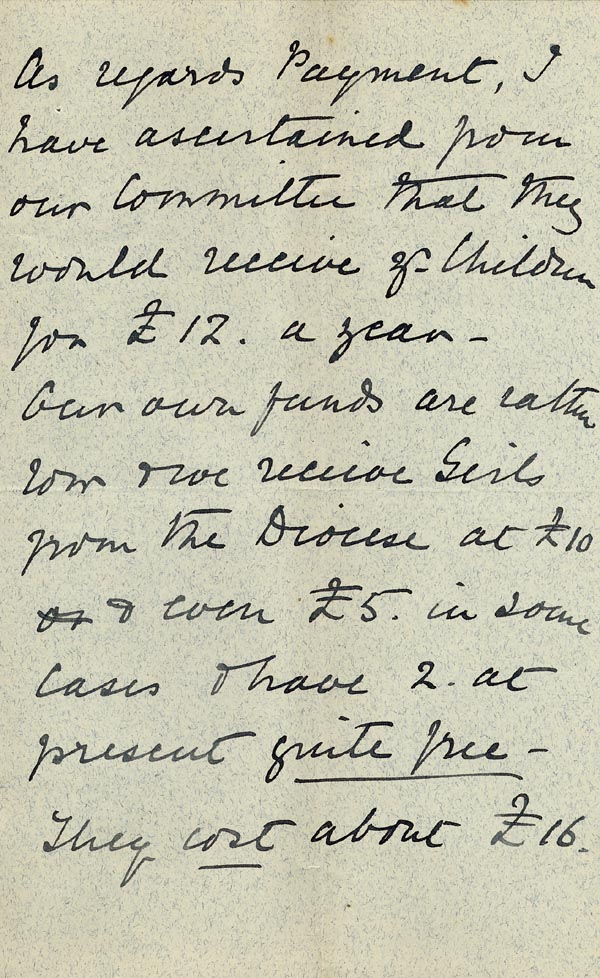 As regards Payment, I
have ascertained from
our Committee that they
would receive yr Children
for £12. a year -
Our own funds are rather
low & we receive Girls
from the Diocese at £10
or & even £5. in some
cases & have 2. at
present quite free -
They cost about £16.